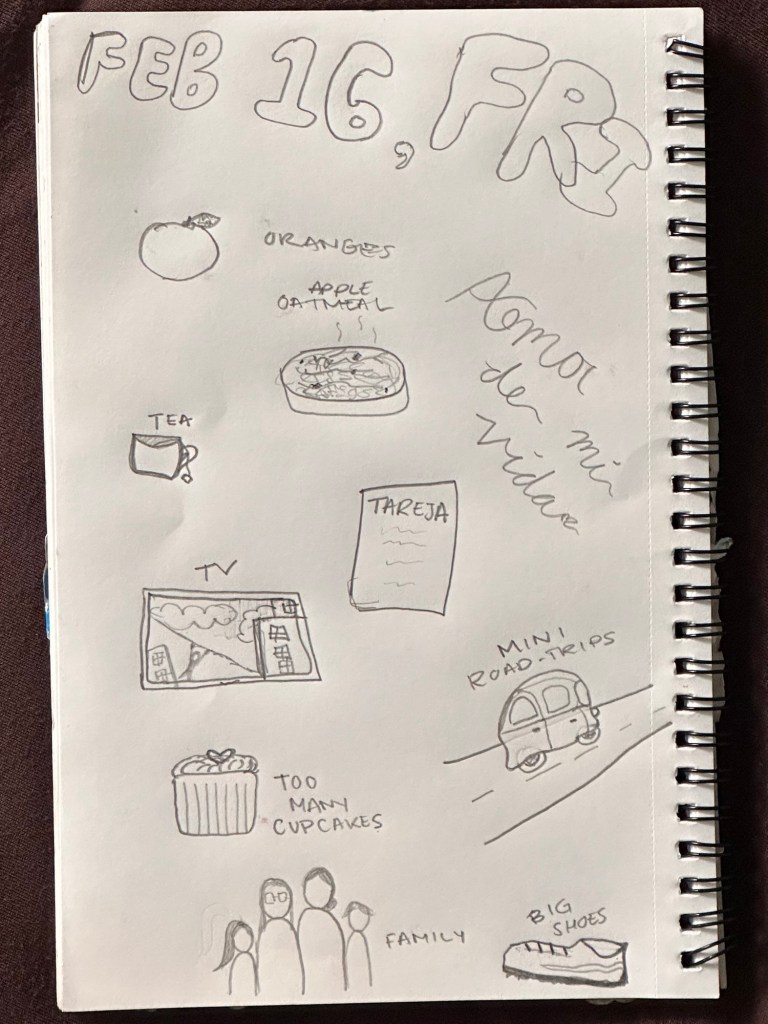 FEB 16, FRI
ORANGES
APPLE
OATMEAL
Amor
de mi
vida
TEA
TAREJA
TV
MINI
ROAD-TRIPS
TOO
MANY
CUPCAKES
FAMILY
BIG
SHOES